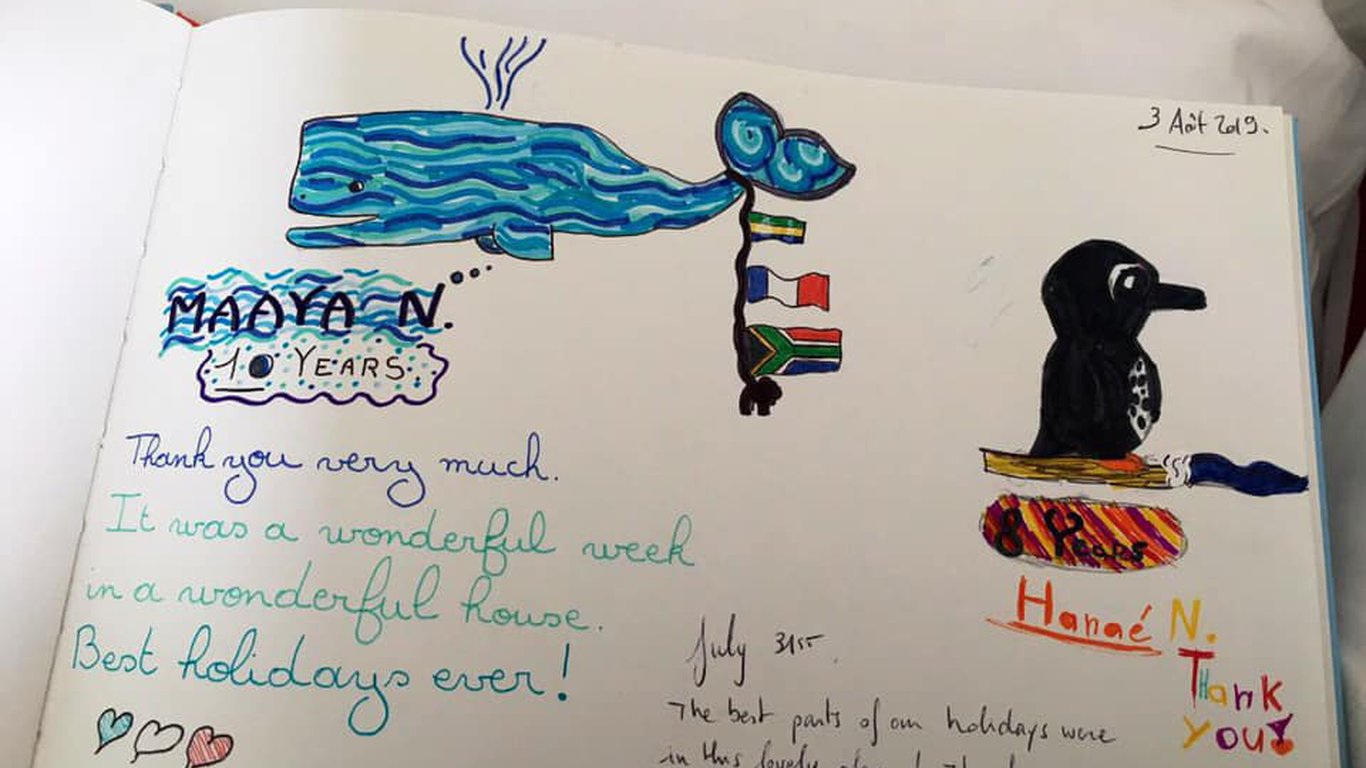 3 Aôt 2019.
MAAYA N.
10 YEARS.
Thank you very much.
It was a wonderful week
in a wonderful house.
Best holidays ever!
8 Years
Hanaé N.
Thank
you!
July 31st.
The best parts of our holidays were
in this lovely